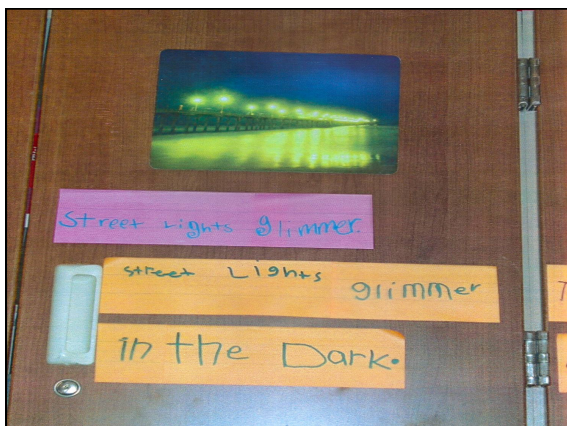 Street Lights glimmer.
street Lights glimmer
in the Dark.